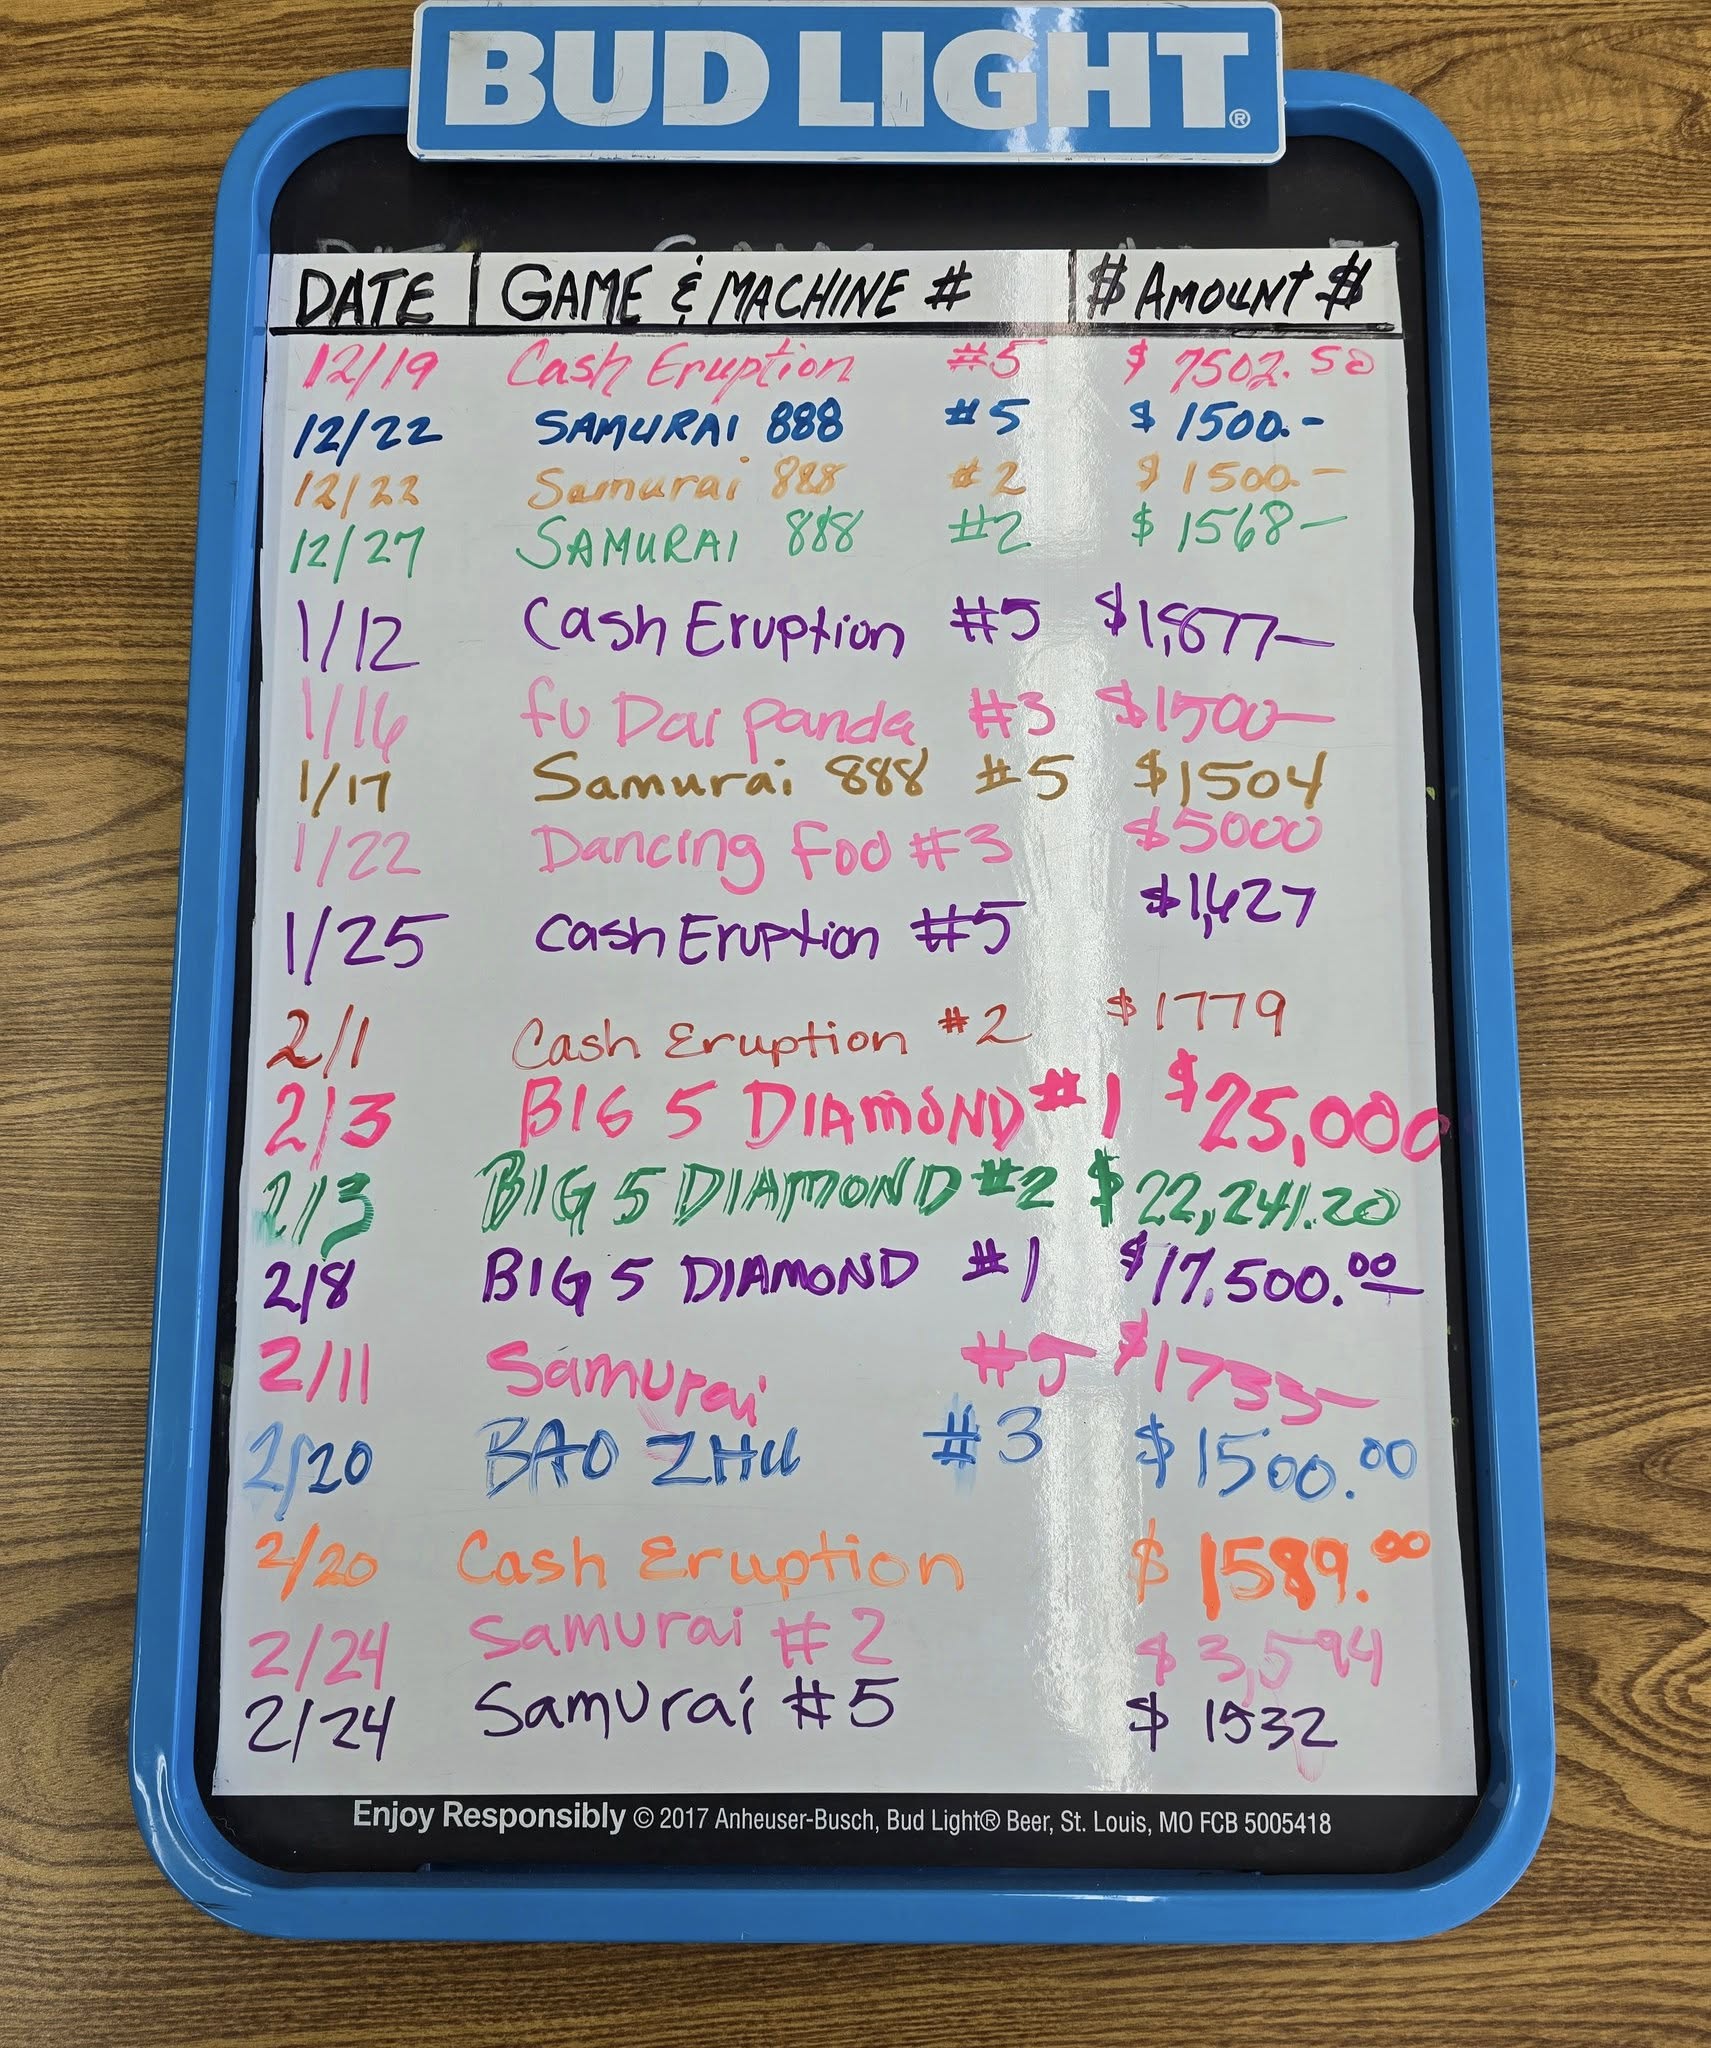 BUD LIGHT®
DATE GAME & MACHINE # $ AMOUNT $
12/19 Cash Eruption #5 $ 7502.50
12/22 SAMURAI 888 #5 $ 1500.-
12/22 Samurai 888 #2 $ 1500.-
12/27 SAMURAI 888 #2 $ 1568-
1/12 Cash Eruption #5 $1,877-
1/16 fu Dai panda #3 $1500-
1/17 Samurai 888 #5 $1504
1/22 Dancing foo #3 $5000
1/25 Cash Eruption #5 $1,427
2/1 Cash Eruption #2 $1779
2/3 BIG 5 DIAMOND #1 $25,000
2/3 BIG 5 DIAMOND #2 $22,241.20
2/8 BIG 5 DIAMOND #1 $17,500.00
2/11 Samurai #5 $1733-
2/20 BAO ZHU #3 $1500.00
2/20 Cash Eruption $1589.00
2/24 Samurai #2 $3,594
2/24 Samurai #5 $ 1532
Enjoy Responsibly © 2017 Anheuser-Busch, Bud Light® Beer, St. Louis, MO FCB 5005418